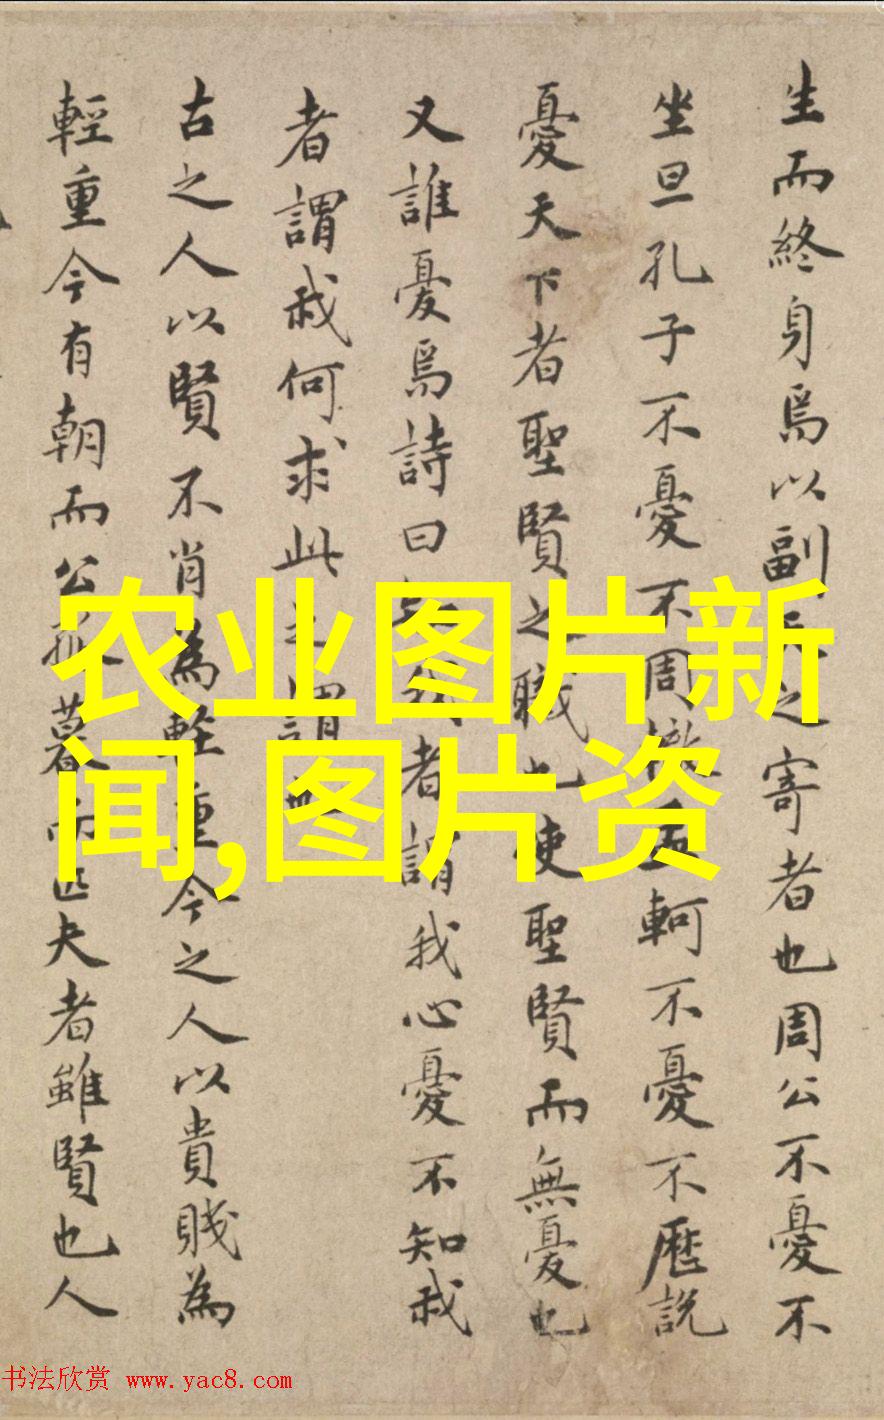 生而終身焉以副之寄者也周公不憂不
坐旦孔子不憂不周軻不憂不歷說
憂天下者聖賢之職也使聖賢而無憂也
又誰憂焉詩曰知我者謂我心憂不知我
者謂我何求此之謂
古之人以賢不肖為輕重今之人以貴賤為
輕重今有朝而公孤暮而匹夫者雖賢也人
农业图片新
闻,图片资
书法欣赏 www.yac8.com